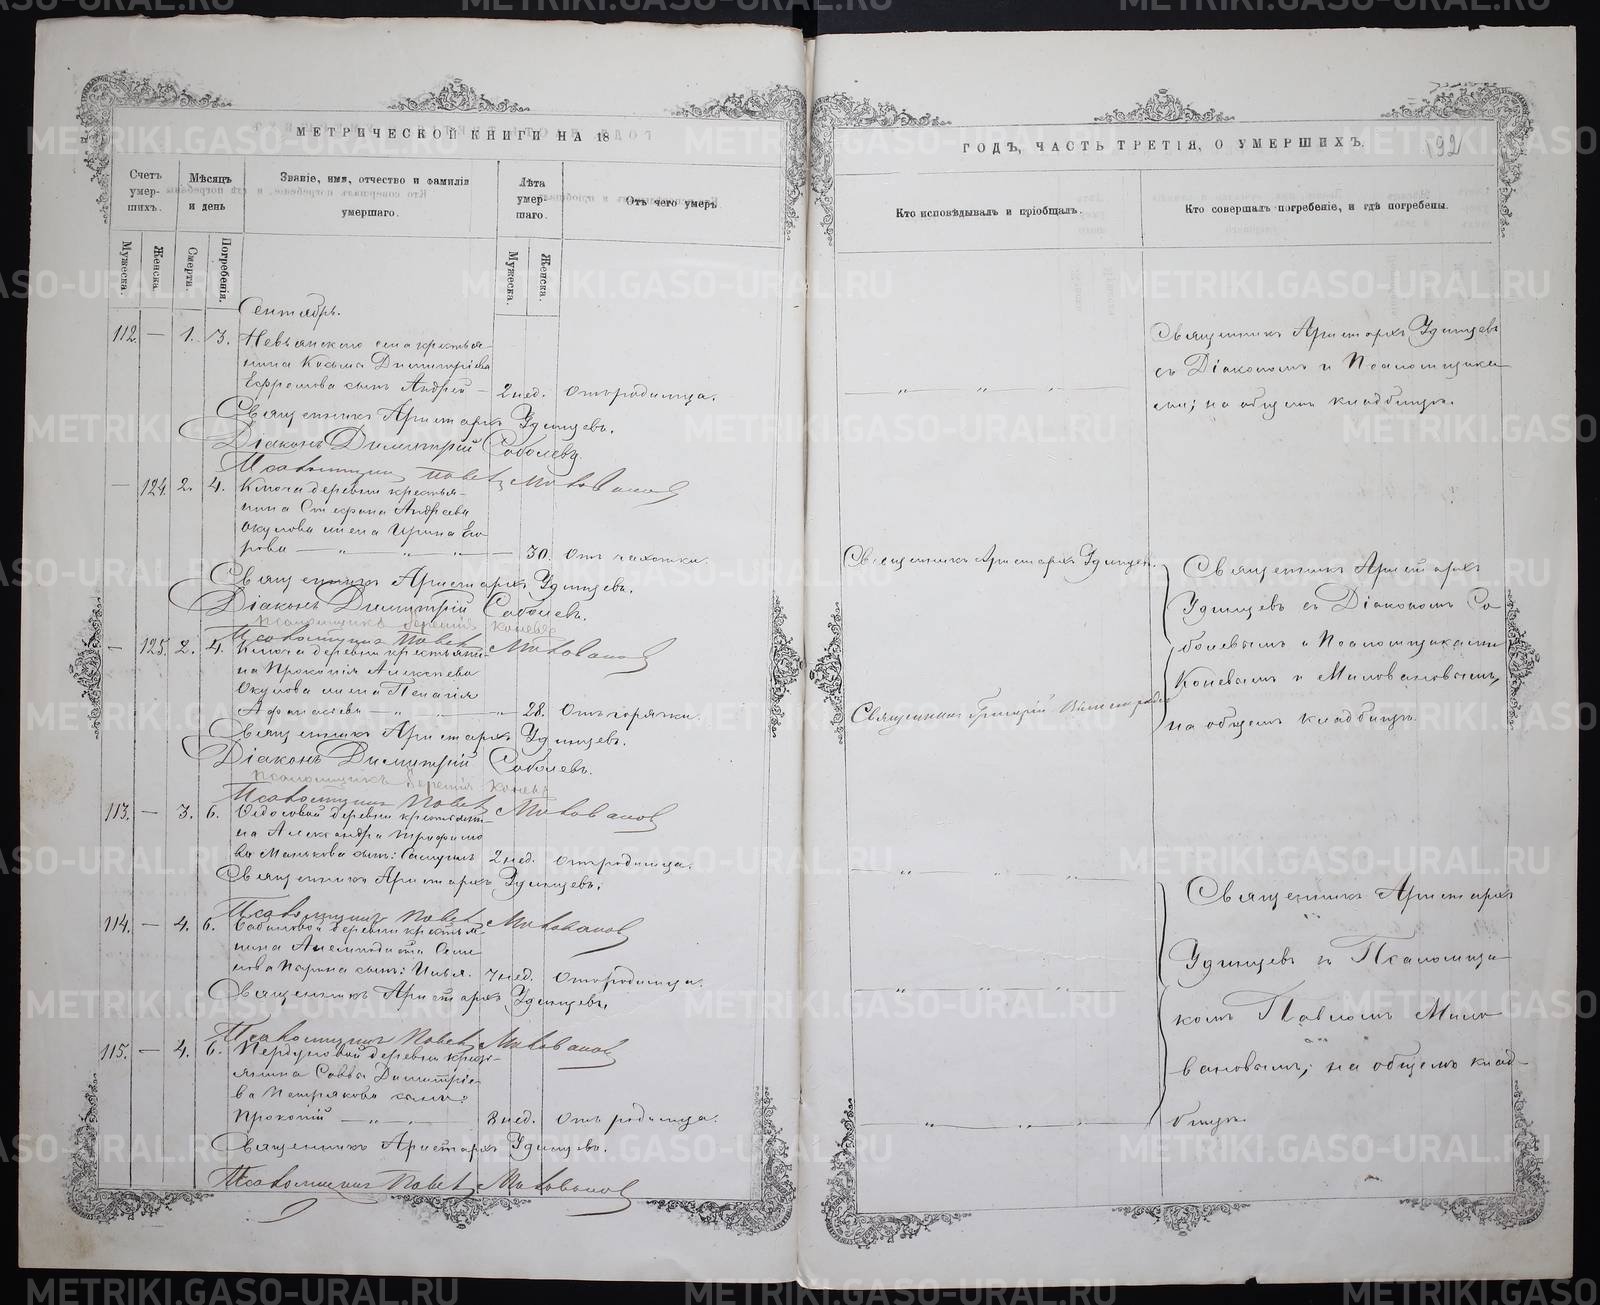 МЕТРИЧЕСКОЙ КНИГИ НА 18
Счетъ умер-шихъ.
Мѣсяцъ и день
Званіе, имя, отчество и фамилія умершаго.
Лѣта умер-шаго.
Отъ чего умеръ
Мужеска.
Женска.
Смерти.
Погребенія.
Мужеска.
Женска.
Сентябрь.
112. — 1. 3. Невьянского села крестья-
нина Козьмы Димитріева
Ефремова сынъ Андрей — 2 нед. Отъ родимца.
Священникъ Аристархъ Удинцевъ.
Діаконъ Димитрій Соболевъ.
Псаломщикъ Павелъ Миловановъ
— 124. 2. 4. Ключа деревни крестья-
нина Стефана Андреева
Окулова жена Ирина Его-
рова — 30. Отъ чахотки.
Священникъ Аристархъ Удинцевъ.
Діаконъ Димитрій Соболевъ.
Псаломщикъ Терентій Коневъ
Псаломщикъ Павелъ Миловановъ
— 125. 2. 4. Ключа деревни крестьяни-
на Прокопія Алексеева
Окулова жена Пелагія
Афанасьева — 28. Отъ горячки.
Священникъ Аристархъ Удинцевъ.
Діаконъ Димитрій Соболевъ.
Псаломщикъ Терентій Коневъ
Псаломщикъ Павелъ Миловановъ
113. — 3. 6. Федосовой деревни крестьяни-
на Александра Трофимо
ва Манькова сынъ: Самуилъ 2 нед. Отъ родимца.
Священникъ Аристархъ Удинцевъ.
Псаломщикъ Павелъ Миловановъ
114. — 4. 6. деревни крестья-
нина
сынъ: Илья. 7 нед. Отъ родимца.
Священникъ Аристархъ Удинцевъ.
Псаломщикъ Павелъ Миловановъ
115. — 4. 6. деревни кресть-
янина Саввы Димитріе-
ва Петрякова сынъ:
Прокопій — 8 нед. Отъ родимца.
Священникъ Аристархъ Удинцевъ.
Псаломщикъ Павелъ Миловановъ
ГОДЪ, ЧАСТЬ ТРЕТІЯ, О УМЕРШИХЪ.
192
Кто исповѣдывалъ и пріобщалъ.
Кто совершалъ погребеніе, и гдѣ погребены.
Священникъ Аристархъ Удинцевъ
съ Діакономъ и Псаломщика
ми; на общемъ кладбищѣ.
Священникъ Аристархъ Удинцевъ.
Священникъ Григорій
Священникъ Аристархъ
Удинцевъ съ Діакономъ Со
болевымъ и Псаломщиками
Коневымъ и Миловановымъ,
на общемъ кладбищѣ.
Священникъ Аристархъ
Удинцевъ съ Псаломщи
комъ Павломъ Мило
вановымъ; на общемъ клад-
бищѣ.
METRIKI.GASO-URAL.RU